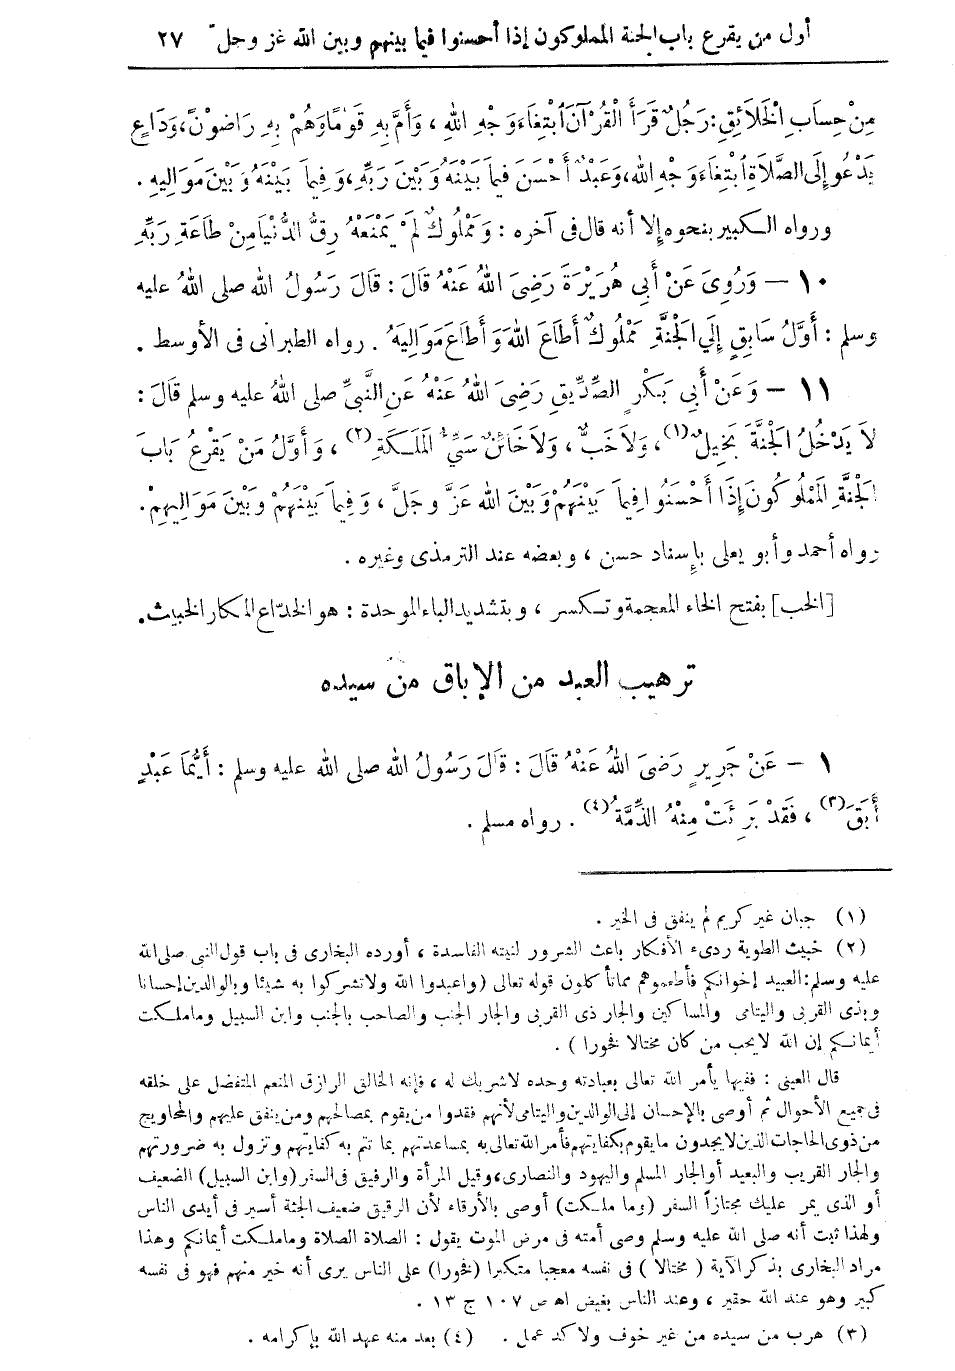 أول من يقرع باب الجنة المملوكون إذا أحسنوا فيما بينهم وبين الله عز وجل ٢٧
مِنْ حِسَابِ الْخَلَائِقِ: رَجُلٌ قَرَأَ الْقُرْآنَ ابْتِغَاءَ وَجْهِ اللهِ ، وَأَمَّ بِهِ قَوْمًا وَهُمْ بِهِ رَاضُونَ، وَدَاعٍ
يَدْعُو إِلَى الصَّلَاةِ ابْتِغَاءَ وَجْهِ اللهِ، وَعَبْدٌ أَحْسَنَ فِيمَا بَيْنَهُ وَبَيْنَ رَبِّهِ، وَفِيمَا بَيْنَهُ وَبَيْنَ مَوَالِيهِ .
ورواه الكبير بنحوه إلا أنه قال فى آخره : وَمَمْلُوكٌ لَمْ يَمْنَعْهُ رِقُّ الدُّنْيَا مِنْ طَاعَةِ رَبِّهِ
١٠ — وَرُوِىَ عَنْ أَبِى هُرَيْرَةَ رَضِىَ اللهُ عَنْهُ قَالَ : قَالَ رَسُولُ الله صلى اللهُ عليه
وسلم : أَوَّلُ سَابِقٍ إِلَى الْجَنَّةِ مَمْلُوكٌ أَطَاعَ اللهَ وَأَطَاعَ مَوَالِيَهُ . رواه الطبرانى فى الأوسط .
١١ — وَعَنْ أَبِى بَكْرٍ الصِّدِّيقِ رَضِىَ اللهُ عَنْهُ عَنِ النَّبِىِّ صلى اللهُ عليه وسلم قَالَ :
لَا يَدْخُلُ الْجَنَّةَ بَخِيلٌ(١)، وَلَا خَبٌّ ، وَلَا خَائِنٌ سَيِّئُ الْمَلَكَةِ(٢) ، وَأَوَّلُ مَنْ يَقْرَعُ بَابَ
الْجَنَّةِ الْمَمْلُوكُونَ إِذَا أَحْسَنُوا فِيمَا بَيْنَهُمْ وَبَيْنَ الله عَزَّ وَجَلَّ ، وَفِيمَا بَيْنَهُمْ وَبَيْنَ مَوَالِيهِمْ.
رواه أحمد وأبو يعلى بإسناد حسن ، وبعضه عند الترمذى وغيره .
[الخب] بفتح الخاء المعجمة وتكسر ، وبتشديد الباء الموحدة : هو الخدّاع المكار الخبيث.
ترهيب العبد من الإباق من سيده
١ — عَنْ جَرِيرٍ رَضِىَ اللهُ عَنْهُ قَالَ : قَالَ رَسُولُ الله صلى الله عليه وسلم : أَيُّمَا عَبْدٍ
أَبَقَ(٣) ، فَقَدْ بَرِئَتْ مِنْهُ الذِّمَّةُ(٤) . رواه مسلم .
(١) جبان غير كريم لم ينفق فى الخير .
(٢) خبيث الطوية ردىء الأفكار باعث الشرور لنيته الفاسدة ، أورده البخارى فى باب قول النبى صلى الله
عليه وسلم: العبيد إخوانكم فأطعموهم مما تأكلون قوله تعالى (واعبدوا الله ولا تشركوا به شيئا وبالوالدين إحسانا
وبذى القربى واليتامى والمساكين والجار ذى القربى والجار الجنب والصاحب بالجنب وابن السبيل وما ملكت
أيمانكم إن الله لا يحب من كان مختالا فخورا ) .
قال العينى : ففيها يأمر الله تعالى بعبادته وحده لا شريك له ، فإنه الخالق الرازق المنعم المتفضل على خلقه
فى جميع الأحوال ثم أوصى بالإحسان إلى الوالدين واليتامى لأنهم فقدوا من يقوم بمصالحهم ومن ينفق عليهم والمحاويج
من ذوى الحاجات الذين لا يجدون ما يقوم بكفايتهم فأمر الله تعالى به بمساعدتهم بما تتم به كفايتهم وتزول به ضرورتهم
والجار القريب والبعيد أو الجار المسلم واليهود والنصارى، وقيل المرأة والرفيق فى السفر (وابن السبيل) الضعيف
أو الذى يمر عليك مجتازاً السفر (وما ملكت) أوصى بالأرقاء لأن الرقيق ضعيف الجثة أسير فى أيدى الناس
ولهذا ثبت أنه صلى الله عليه وسلم وصى أمته فى مرض الموت يقول : الصلاة الصلاة وما ملكت أيمانكم وهذا
مراد البخارى بذكر الآية ( مختالا ) فى نفسه معجبا متكبرا (فخورا) على الناس يرى أنه خير منهم فهو فى نفسه
كبير وهو عند الله حقير ، وعند الناس بغيض اه ص ١٠٧ ج ١٣ .
(٣) هرب من سيده من غير خوف ولا كد عمل . (٤) بعد منه عهد الله بإكرامه .